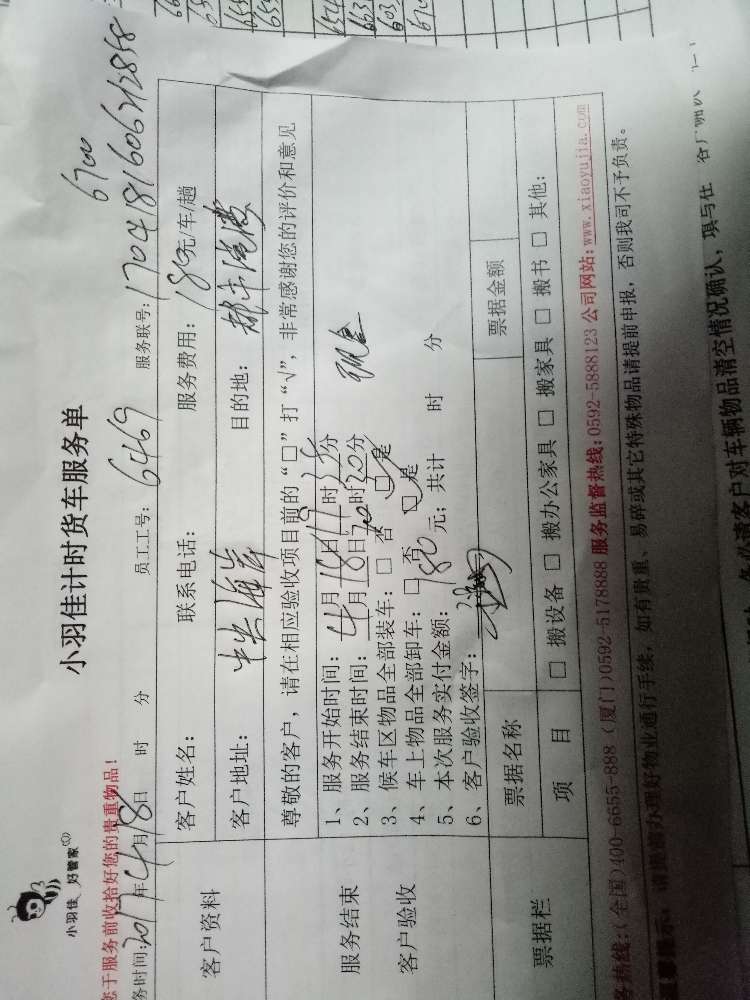 小羽佳 好管家
小羽佳计时货车服务单
您于服务前收拾好您的贵重物品!
6700
务时间:2017年4月18日 时 分 员工工号: 6469 服务联号: 1704181606212858
客户资料
客户姓名: 联系电话: 服务费用: 180元/车/趟
客户地址: 中央海岸 目的地:
尊敬的客户,请在相应验收项目前的“□”打“√”,非常感谢您的评价和意见
服务结束
客户验收
1、服务开始时间: 4月18日19时35分
2、服务结束时间: 4月18日20时20分 现金
3、候车区物品全部装车: □ 否 □ 是
4、车上物品全部卸车: □ 否 □ 是
5、本次服务实付金额: 180元; 共计 时 分
6、客户验收签字:
票据栏
票据名称 票据金额
项 目 □ 搬设备 □ 搬办公家具 □ 搬家具 □ 搬书 □ 其他:
务热线:(全国)400-6655-888 (厦门)0592-5178888 服务监督热线:0592-5888123 公司网站:www.xiaoyujia.com
请提前办理好物业通行手续,如有贵重、易碎或其它特殊物品请提前申报,否则我司不予负责。
务必请客户对车辆物品清空情况确认,填写在